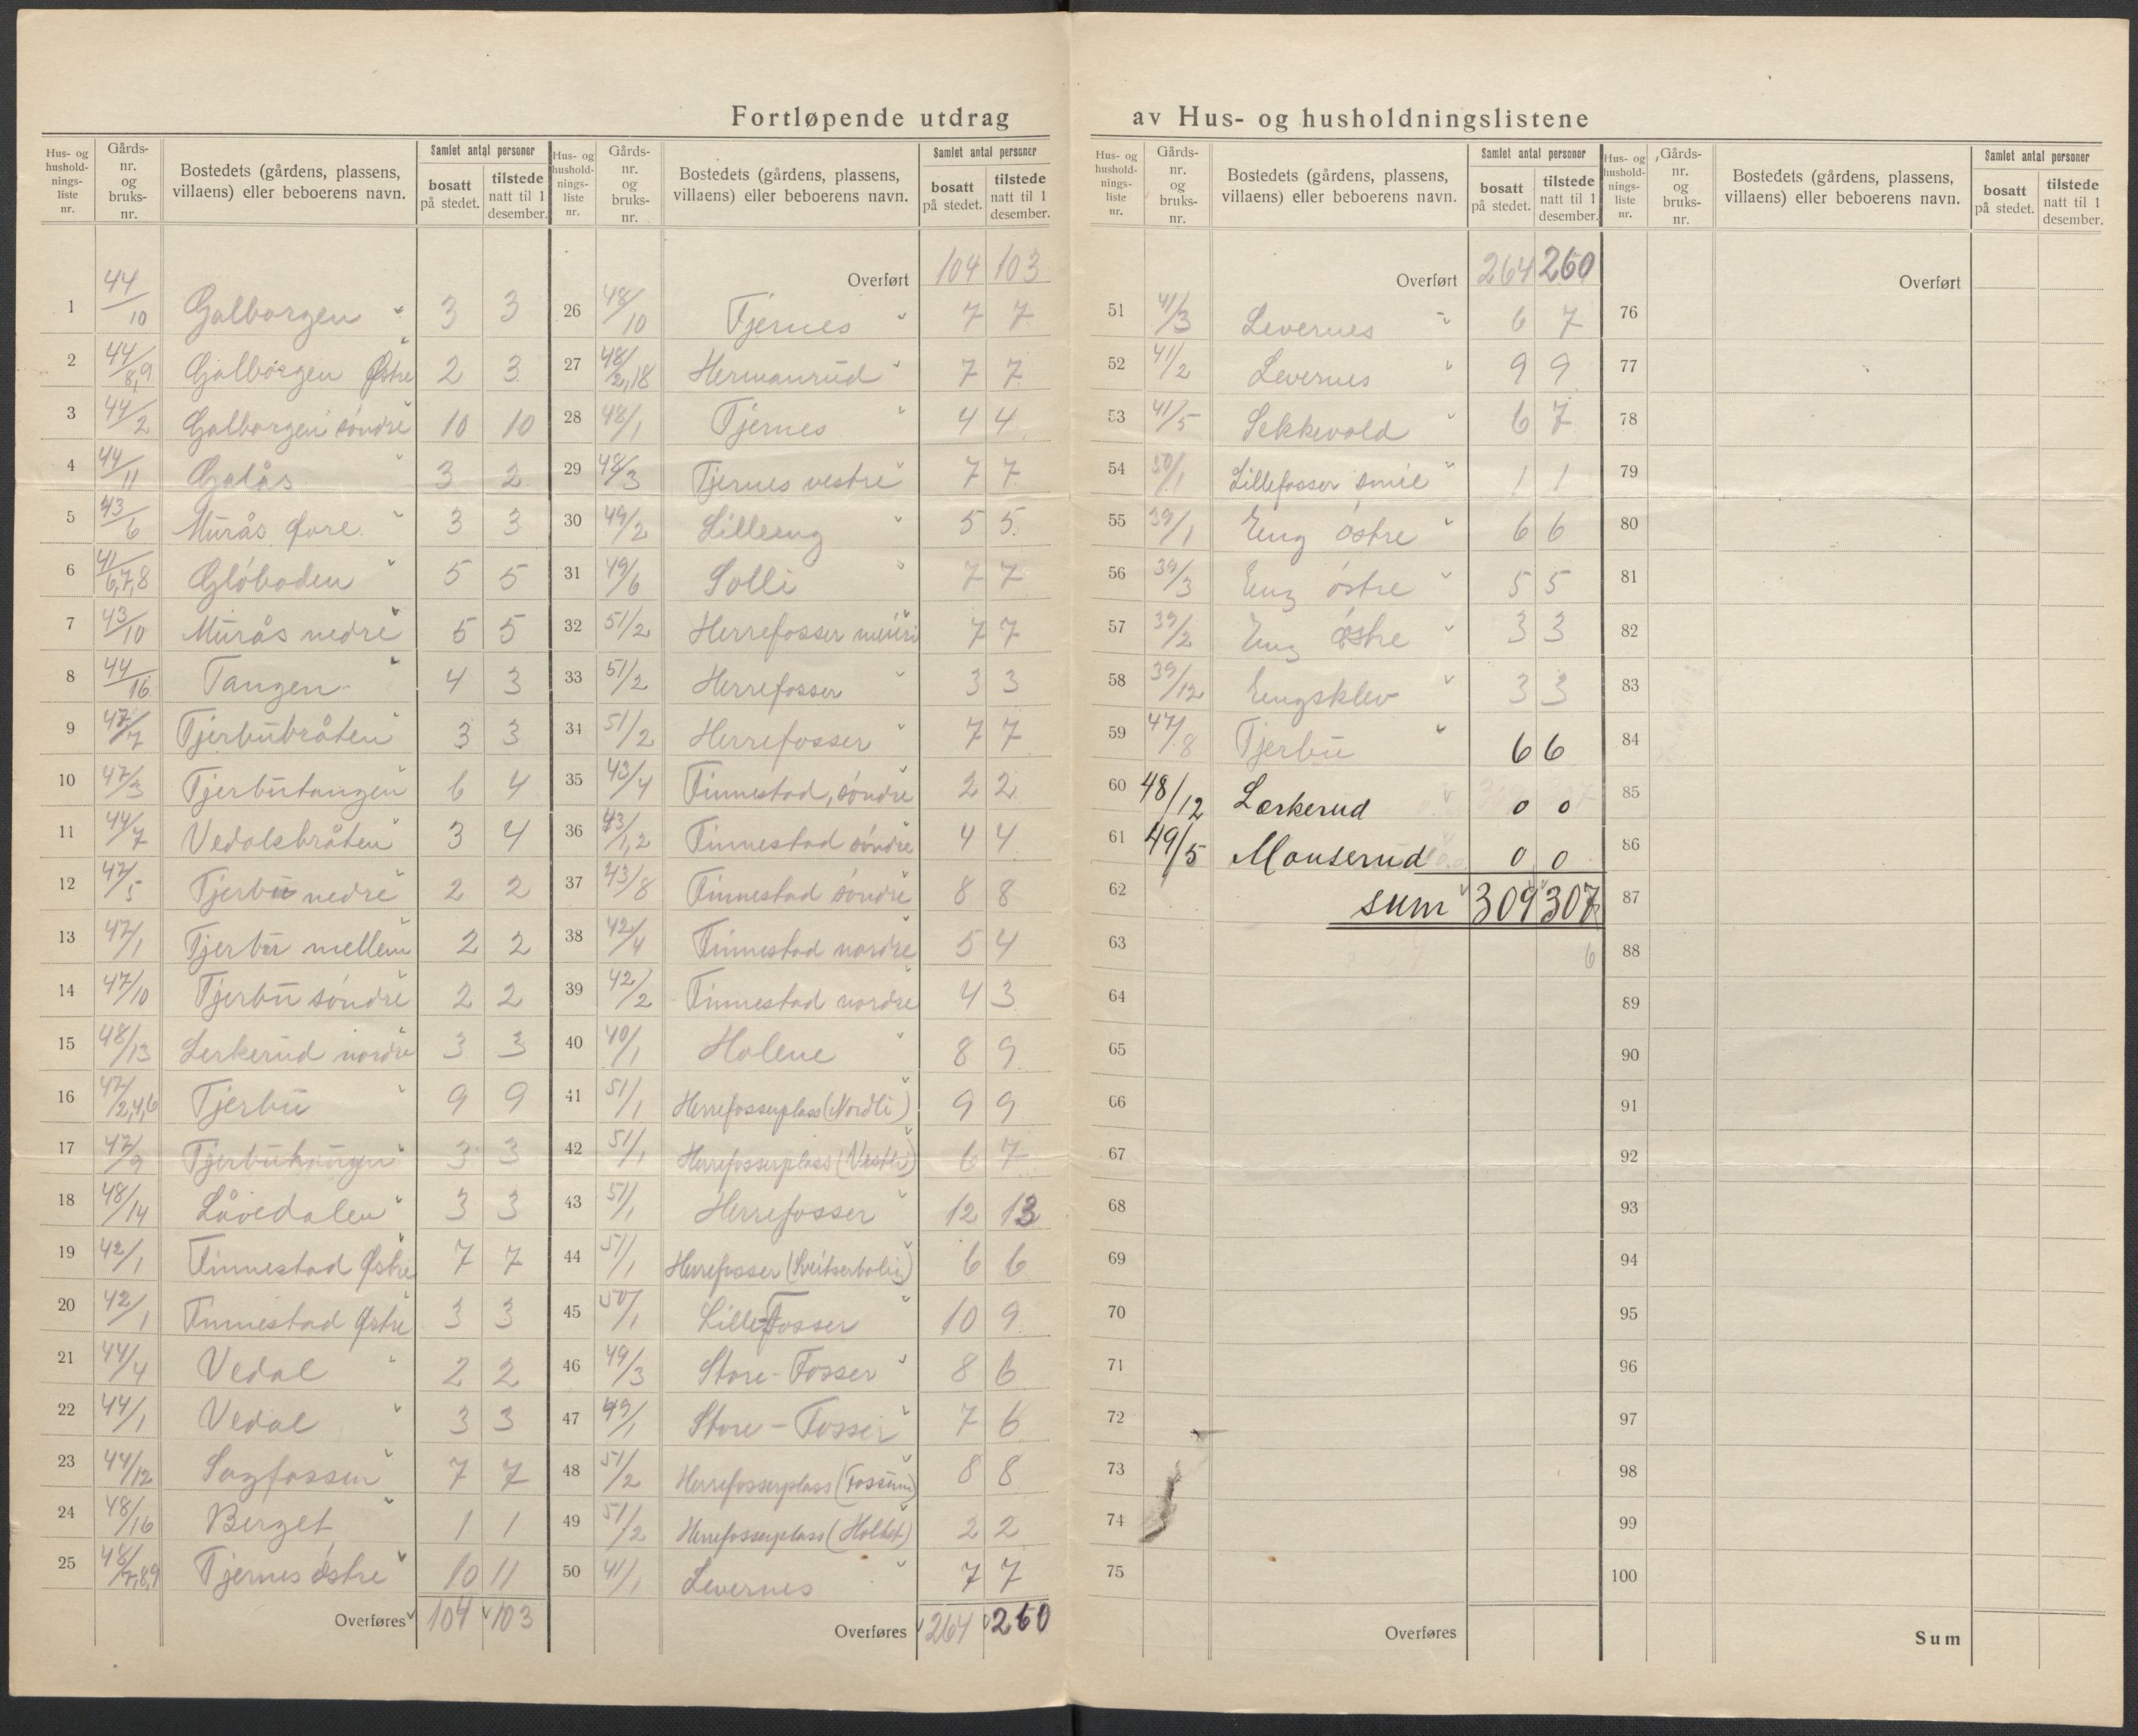 Fortløpende utdrag av Hus- og husholdningslistene
Hus- og husholdningsliste nr. | Gårds-nr. og bruks-nr. | Bostedets (gårdens, plassens, villaens) eller beboerens navn. | Samlet antal personer | bosatt på stedet. | tilstede natt til 1 desember.
1 44/10 Galborgen 3 3
2 44/8,9 Galborgen Østre 2 3
3 44/2 Galborgen søndre 10 10
4 44/11 Galås 3 2
5 43/6 Murås øvre 3 3
6 41/6,7,8 Gløboden 5 5
7 43/10 Murås nedre 5 5
8 44/16 Tangen 4 3
9 47/7 Tjerbubråten 3 3
10 47/3 Tjerbutangen 6 4
11 44/7 Vedalsbråten 3 4
12 47/5 Tjerbu nedre 2 2
13 47/1 Tjerbu mellem 2 2
14 47/10 Tjerbu søndre 2 2
15 48/13 Lerkerud nordre 3 3
16 47/2,4,6 Tjerbu 9 9
17 47/9 3 3
18 48/14 Låvedalen 3 3
19 42/1 Finnestad Østre 7 7
20 42/1 Finnestad Østre 3 3
21 44/4 Vedal 2 2
22 44/1 Vedal 3 3
23 44/12 Sagfossen 7 7
24 48/16 Berget 1 1
25 48/7,8,9 Tjernes østre 10 11
Overføres 104 103
Hus- og husholdningsliste nr. | Gårds-nr. og bruks-nr. | Bostedets (gårdens, plassens, villaens) eller beboerens navn. | Samlet antal personer | bosatt på stedet. | tilstede natt til 1 desember.
Overført 104 103
26 48/10 Tjernes 7 7
27 48/2,18 Hermanrud 7 7
28 48/1 Tjernes 4 4
29 48/3 Tjernes vestre 7 7
30 49/2 Lilleeng 5 5
31 49/6 Solli 7 7
32 51/2 Herrefosser meieri 7 7
33 51/2 Herrefosser 3 3
34 51/2 Herrefosser 7 7
35 43/4 Finnestad, søndre 2 2
36 43/1,2 Finnestad søndre 4 4
37 43/8 Finnestad søndre 8 8
38 42/4 Finnestad nordre 5 4
39 42/2 Finnestad nordre 4 3
40 40/1 Holene 8 9
41 51/1 Herrefosserplass (Nordli) 9 9
42 51/1 Herrefosserplass (Vestli) 6 7
43 51/1 Herrefosser 12 13
44 51/1 Herrefosser (Sveitserbolig) 6 6
45 50/1 Lille-Fosser 10 9
46 49/3 Store-Fosser 8 6
47 49/1 Store-Fosser 7 6
48 51/2 Herrefosserplass (Fossum) 8 8
49 51/2 Herrefosserplass (Holtet) 2 2
50 41/1 Levernes 7 7
Overføres 264 260
Hus- og husholdningsliste nr. | Gårds-nr. og bruks-nr. | Bostedets (gårdens, plassens, villaens) eller beboerens navn. | Samlet antal personer | bosatt på stedet. | tilstede natt til 1 desember.
Overført 264 260
51 41/3 Levernes 6 7
52 41/2 Levernes 9 9
53 41/5 Sekkevold 6 7
54 50/1 Lillefosser smie 1 1
55 39/1 Eng østre 6 6
56 39/3 Eng østre 5 5
57 39/2 Eng østre 3 3
58 39/12 Engsklev 3 3
59 47/8 Tjerbu 6 6
60 48/12 Lerkerud 0 0
61 49/5 Monserud 0 0
62 sum 309 307
63 6
64
65
66
67
68
69
70
71
72
73
74
75
Overføres
Hus- og husholdningsliste nr. | Gårds-nr. og bruks-nr. | Bostedets (gårdens, plassens, villaens) eller beboerens navn. | Samlet antal personer | bosatt på stedet. | tilstede natt til 1 desember.
Overført
76
77
78
79
80
81
82
83
84
85
86
87
88
89
90
91
92
93
94
95
96
97
98
99
100
Sum